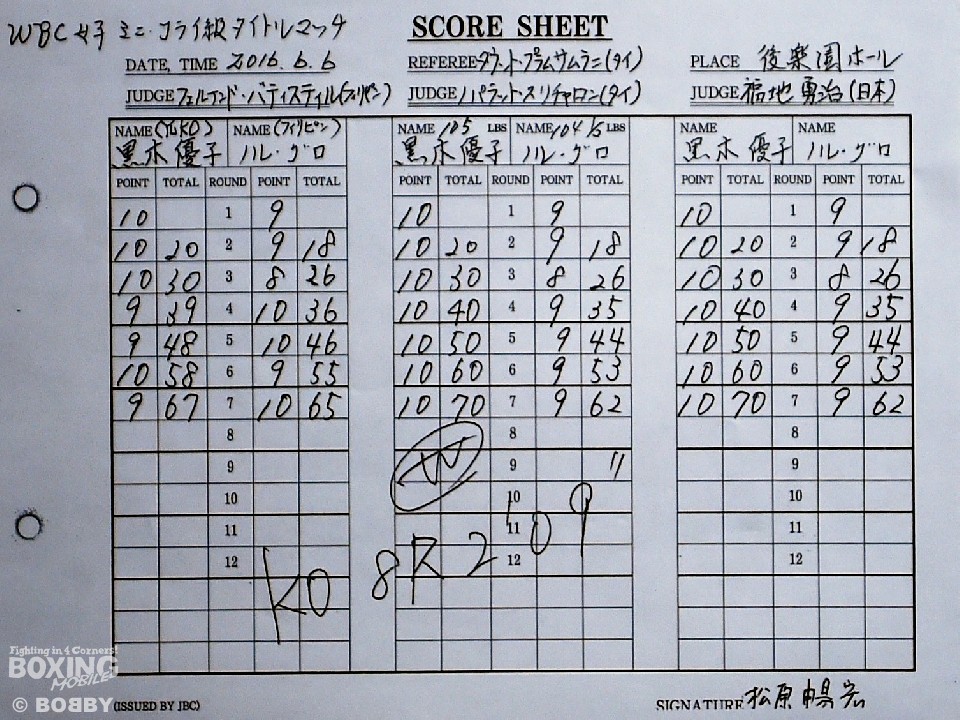 WBC女子ミニ・フライ級タイトルマッチ
SCORE SHEET
DATE, TIME 2016.6.6
REFEREE ダウント・プラムサムラニ(タイ)
PLACE 後楽園ホール
JUDGE フェルナンド・バティスティル(フィリピン)
JUDGE パラット・スリチャロン(タイ)
JUDGE 福地勇治(日本)
NAME NAME (フィリピン) NAME 105 LBS NAME 104 1/2 LBS NAME NAME
黒木優子 ノル・グロ 黒木優子 ノル・グロ 黒木優子 ノル・グロ
POINT TOTAL ROUND POINT TOTAL POINT TOTAL ROUND POINT TOTAL POINT TOTAL ROUND POINT TOTAL
10 1 9 10 1 9 10 1 9
10 20 2 9 18 10 20 2 9 18 10 20 2 9 18
10 30 3 8 26 10 30 3 8 26 10 30 3 8 26
9 39 4 10 36 10 40 4 9 35 10 40 4 9 35
9 48 5 10 46 10 50 5 9 44 10 50 5 9 44
10 58 6 9 55 10 60 6 9 53 10 60 6 9 53
9 67 7 10 65 10 70 7 9 62 10 70 7 9 62
8 8 8
9 W 9 〃 9
10 10 10
11 11 11
12 12 12
KO 8R 2 09
Fighting in 4 Corners!
BOXING
MOBILE
© BOBBY
(ISSUED BY JBC)
SIGNATURE 松原暢宏